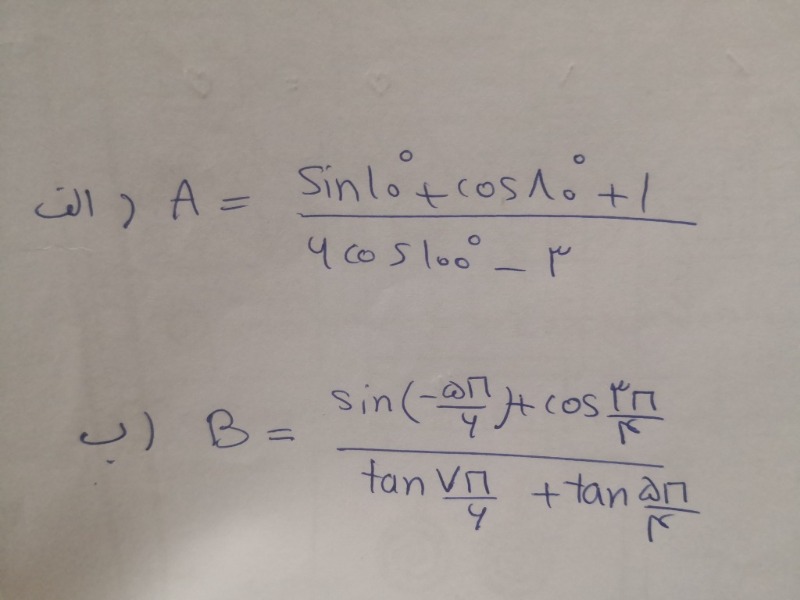 الف) A = (sin۱۰° + cos۸۰° + ۱) / (۶cos۱۰۰° - ۳)
ب) B = (sin(-۵π/۶) + cos ۳π/۴) / (tan ۷π/۶ + tan ۵π/۴)